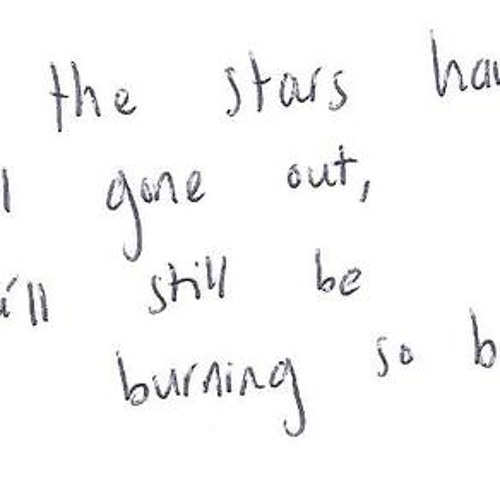 the stars
gone out,
still be
burning so